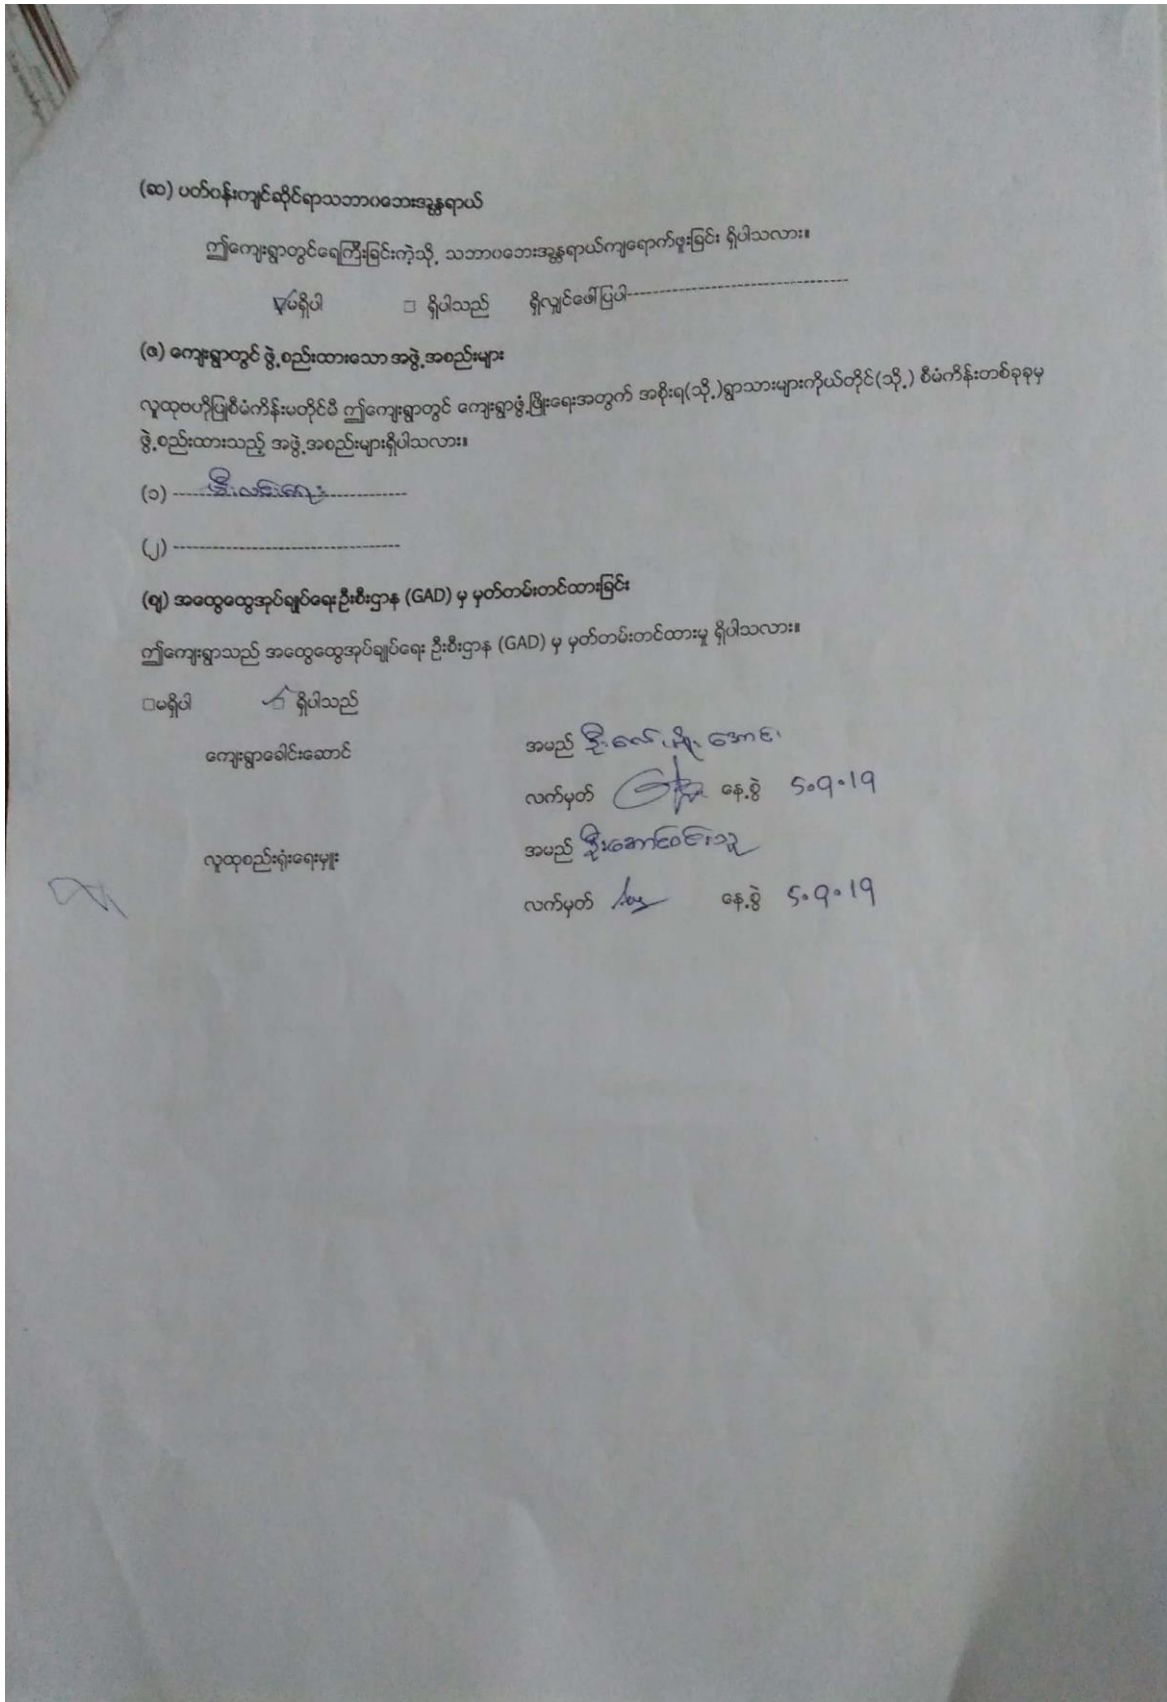 (ဆ) ပတ်ဝန်းကျင်ဆိုင်ရာသဘာဝဘေးအန္တရာယ်
ဤကျေးရွာတွင်ရေကြီးခြင်းကဲ့သို့ သဘာဝဘေးအန္တရာယ်ကျရောက်ဖူးခြင်း ရှိပါသလား။
မရှိပါ □ ရှိပါသည် ရှိလျှင်ဖော်ပြပါ-----------------------------------
(ဇ) ကျေးရွာတွင် ဖွဲ့စည်းထားသော အဖွဲ့အစည်းများ
လူထုဗဟိုပြုစီမံကိန်းမတိုင်မီ ဤကျေးရွာတွင် ကျေးရွာဖွံ့ဖြိုးရေးအတွက် အစိုးရ(သို့)ရွာသားများကိုယ်တိုင်(သို့) စီမံကိန်းတစ်ခုခုမှ
ဖွဲ့စည်းထားသည့် အဖွဲ့အစည်းများရှိပါသလား။
(၁) မီးလင်းရေး
(၂) -----------------------------------
(ဈ) အထွေထွေအုပ်ချုပ်ရေးဦးစီးဌာန (GAD) မှ မှတ်တမ်းတင်ထားခြင်း
ဤကျေးရွာသည် အထွေထွေအုပ်ချုပ်ရေး ဦးစီးဌာန (GAD) မှ မှတ်တမ်းတင်ထားမှု ရှိပါသလား။
□မရှိပါ ရှိပါသည်
ကျေးရွာခေါင်းဆောင် အမည် ဦး အောင်
လက်မှတ် နေ့စွဲ 5.9.19
လူထုစည်းရုံးရေးမှူး အမည် ဦးဆောင်ဝင်းသူ
လက်မှတ် နေ့စွဲ 5.9.19